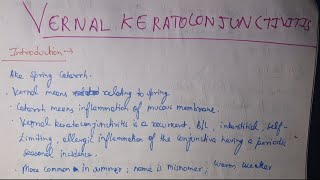 VERNAL KERATOCONJUNCTIVITIS
Introduction →
Aka Spring Catarrh.
• Vernal means relating to spring
• Catarrh means inflammation of mucous membrane.
• Vernal keratoconjunctivitis is a recurrent, B/L, interstitial, self-
limiting, allergic inflammation of the conjunctiva having a periodic
seasonal incidence.
• More common in summer; name is misnomer; warm weather